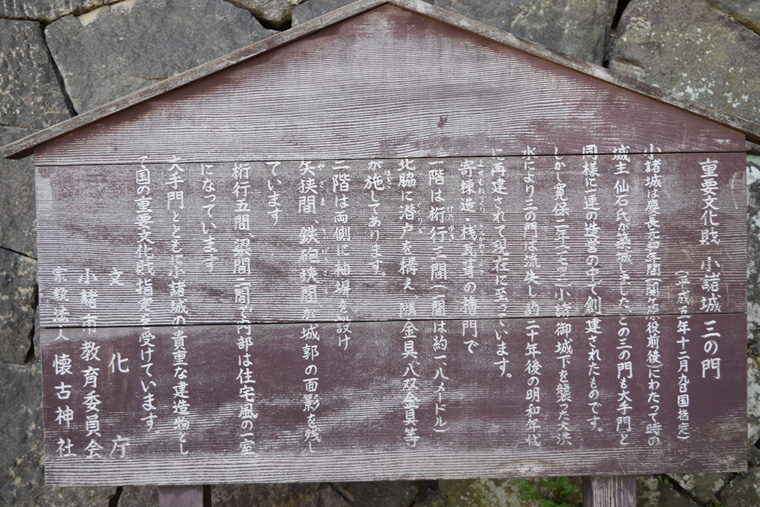 重要文化財 小諸城 三の門
(平成五年十二月九日国指定)
小諸城は慶長 年間(関ヶ原役前後)にわたって時の
城主仙石氏が築城しました。この三の門も大手門と
同様に一連の造営の中で創建されたものです。
しかし寛保二年 小諸御城下を襲った大洪
水により三の門は流失し約二十年後の明和年代
に再建されて現在に至っています。
寄棟造・桟瓦葺の櫓門で
一階は桁行三間(一間は約一・八メートル)
北脇に潜戸を構え、隅金具、八双金具等
が施してあります。
二階は両側に袖塀を設け
矢狭間、鉄砲狭間が城郭の面影を残し
ています
桁行五間、梁間二間で内部は住宅風の一室
になっています
大手門とともに小諸城の貴重な建造物とし
て国の重要文化財指定を受けています。
文化庁
小諸市教育委員会
宗教法人 懐古神社